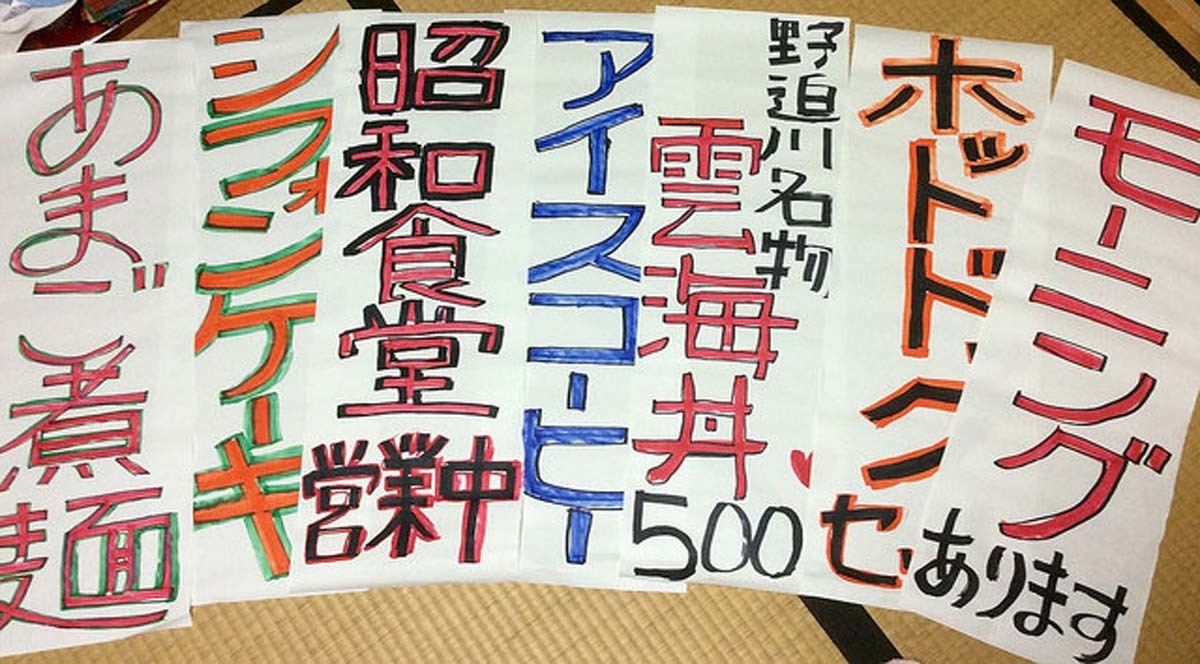 モーニング
あります
ホットドッグ
セ
野迫川名物
雲海丼
500
アイスコーヒー
昭和食堂
営業中
シフォンケーキ
あまご煮麺